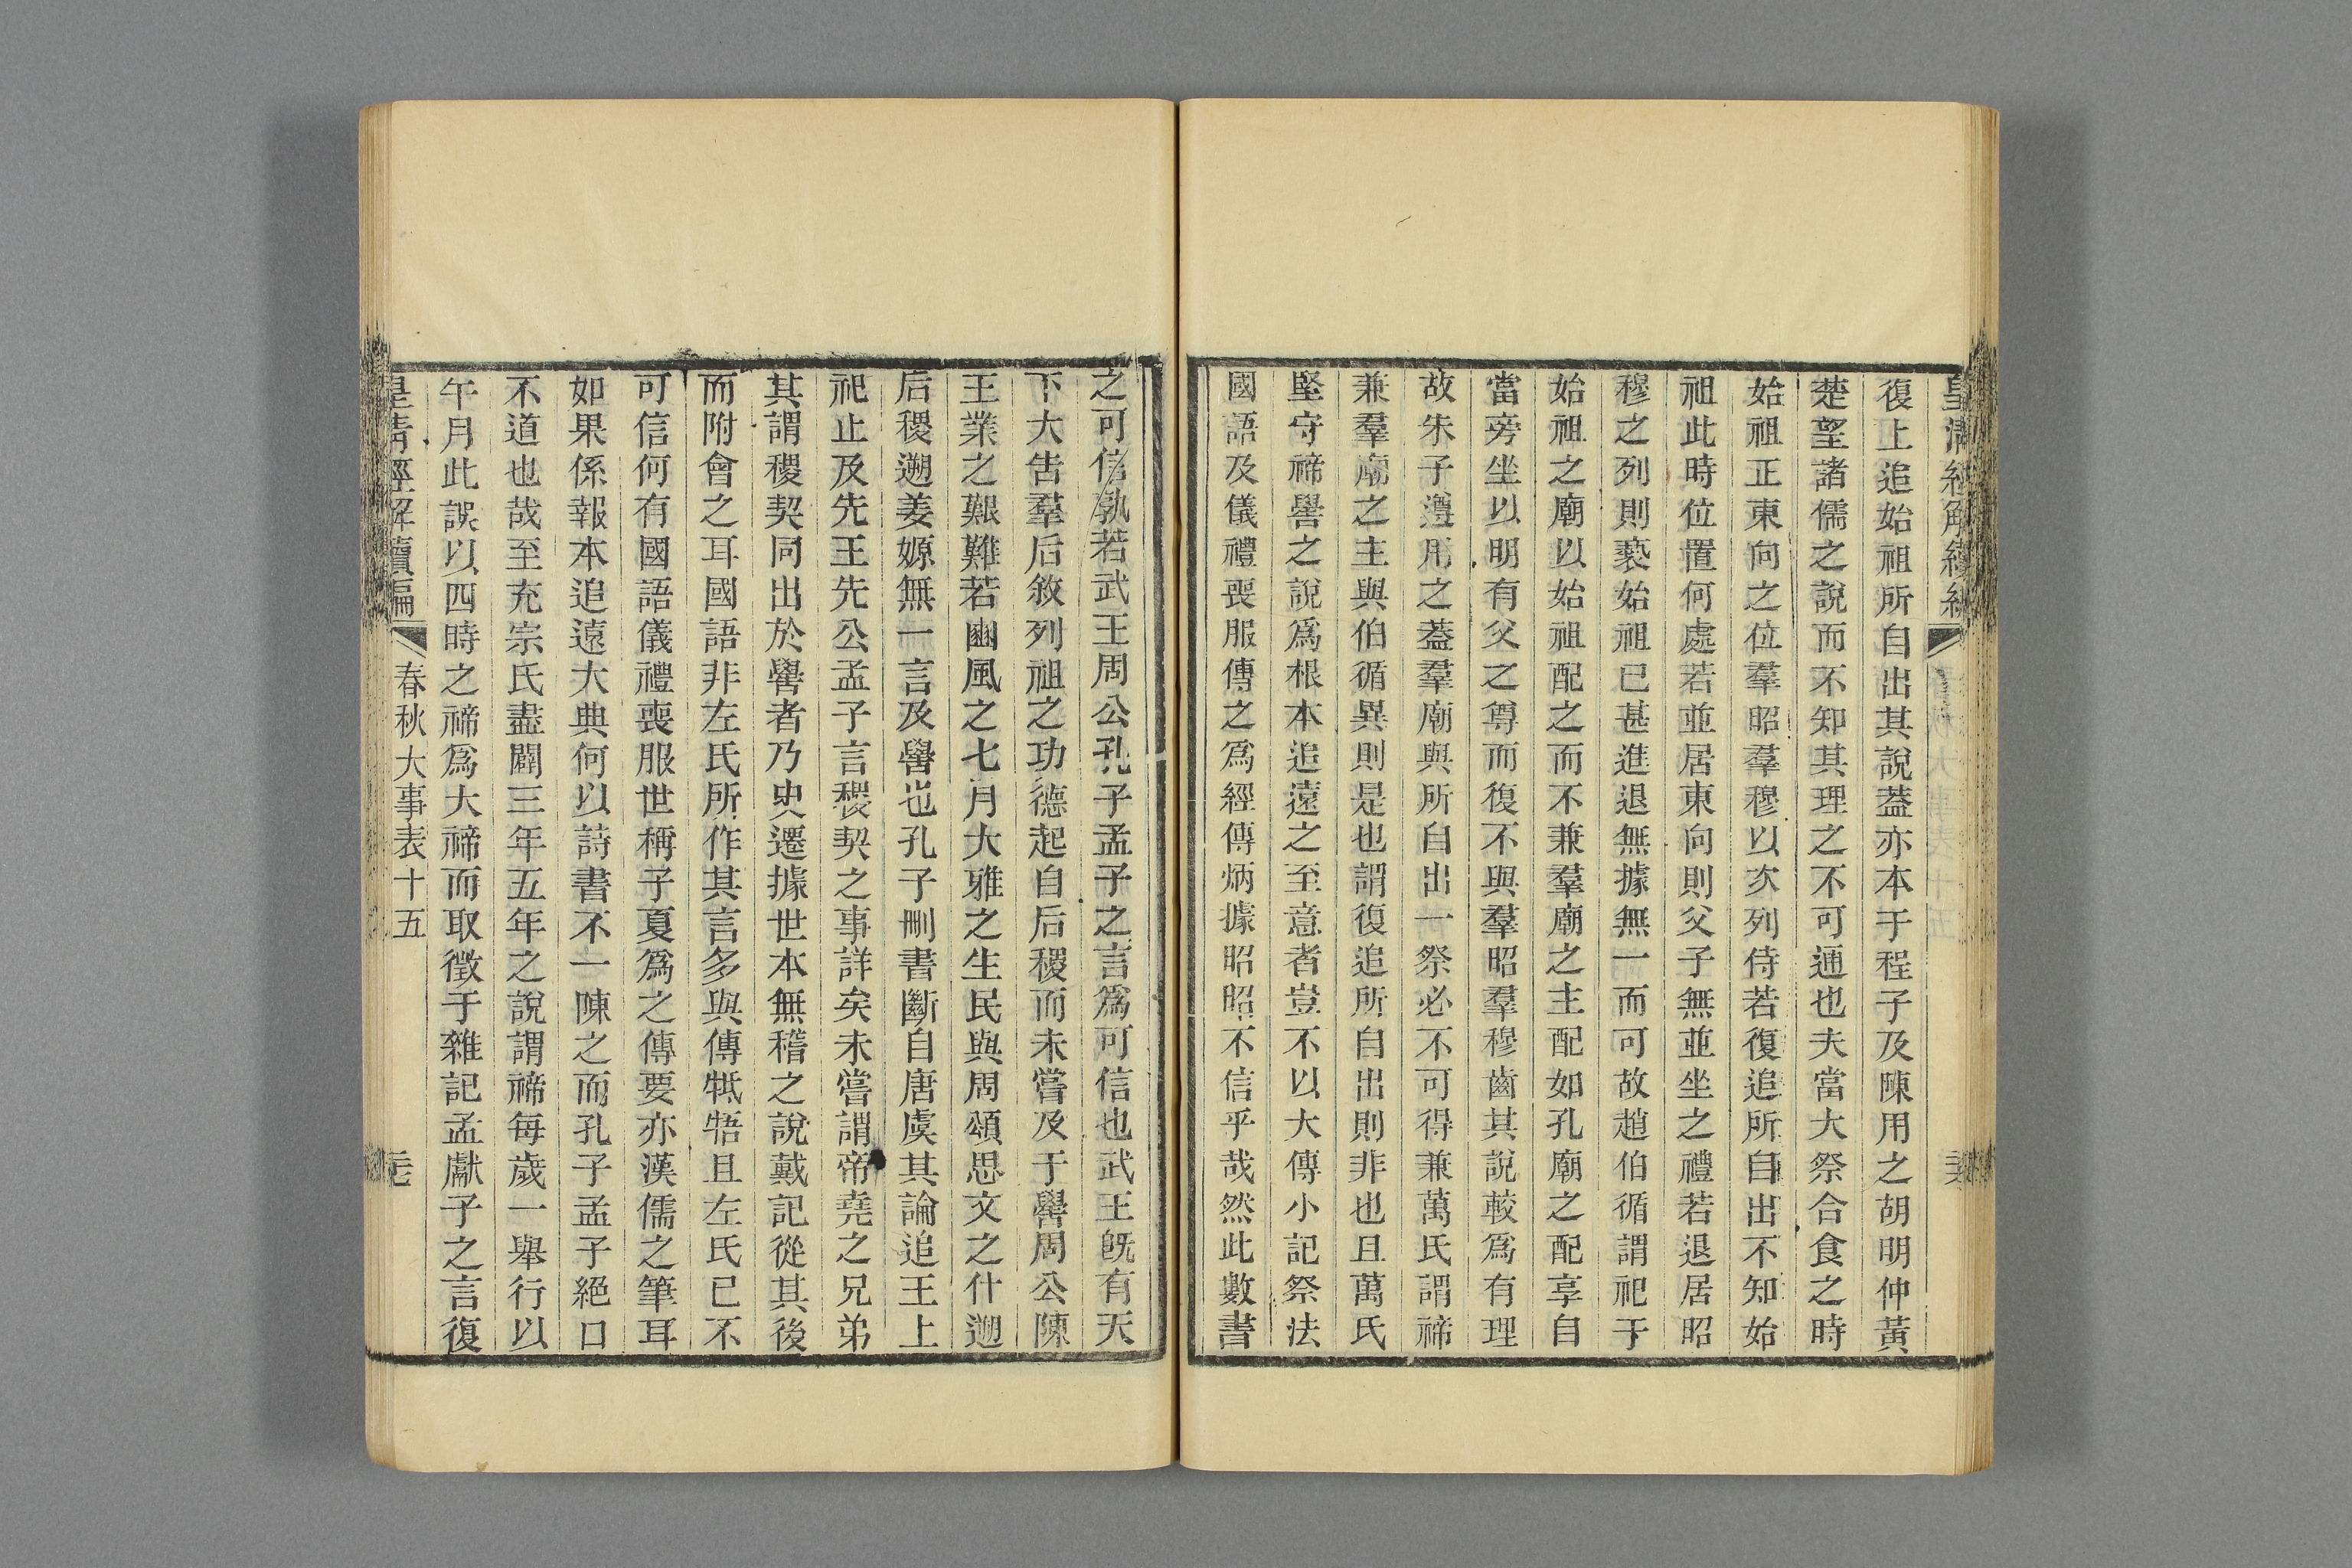 復上追始祖所自出其說蓋亦本于程子及陳用之胡明仲黃
楚望諸儒之說而不知其理之不可通也夫當大祭合食之時
始祖正東向之位羣昭羣穆以次列侍若復追所自出不知始
祖此時位置何處若並居東向則父子無並坐之禮若退居昭
穆之列則褻始祖已甚進退無據無一而可故趙伯循謂祀于
始祖之廟以始祖配之而不兼羣廟之主配如孔廟之配享自
當旁坐以明有父之尊而復不與羣昭羣穆齒其說較爲有理
故朱子遵用之蓋羣廟與所自出一祭必不可得兼萬氏謂禘
兼羣廟之主與伯循異則是也謂復追所自出則非也且萬氏
堅守禘嚳之說爲根本追遠之至意者豈不以大傳小記祭法
國語及儀禮喪服傳之爲經傳炳據昭昭不信乎哉然此數書
之可信孰若武王周公孔子孟子之言爲可信也武王旣有天
下大告羣后敘列祖之功德起自后稷而未嘗及于嚳周公陳
王業之艱難若豳風之七月大雅之生民與周頌思文之什遡
后稷遡姜嫄無一言及嚳也孔子刪書斷自唐虞其論追王上
祀止及先王先公孟子言稷契之事詳矣未嘗謂帝堯之兄弟
其謂稷契同出於嚳者乃史遷據世本無稽之說戴記從其後
而附會之耳國語非左氏所作其言多與傳牴牾且左氏已不
可信何有國語儀禮喪服世稱子夏爲之傳要亦漢儒之筆耳
如果係報本追遠大典何以詩書不一陳之而孔子孟子絕口
不道也哉至充宗氏盡闢三年五年之說謂禘每歲一舉行以
午月此誤以四時之禘爲大禘而取徵于雜記孟獻子之言復
皇淸經解續編 春秋大事表十五